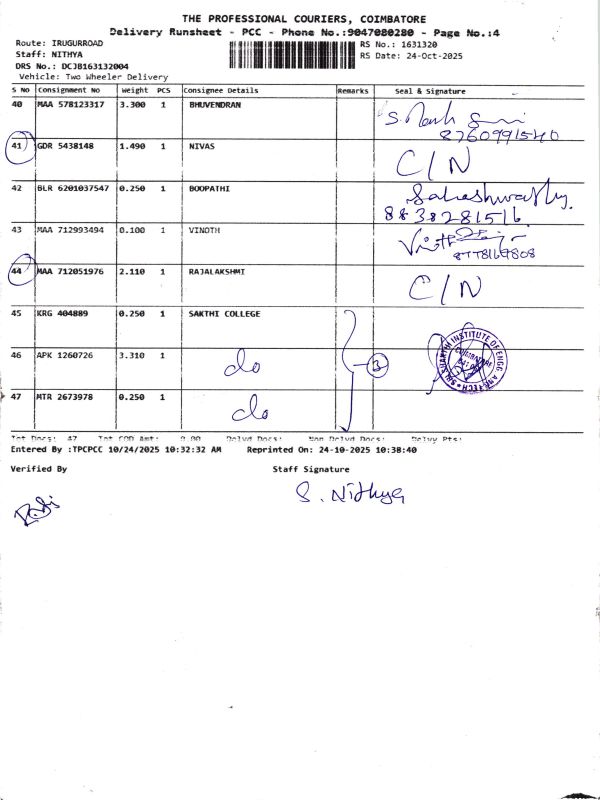 THE PROFESSIONAL COURIERS, COIMBATORE
Delivery Runsheet - PCC - Phone No.:9047080280 - Page No.:4
Route: IRUGURROAD
Staff: NITHYA
DRS No.: DCJB163132004
Vehicle: Two Wheeler Delivery
RS No.: 1631320
RS Date: 24-Oct-2025
S No Consignment No Weight PCS Consignee Details Remarks Seal & Signature
40 MAA 578123317 3.300 1 BHUVENDRAN
8760991540
41 GDR 5438148 1.490 1 NIVAS C/N
42 BLR 6201037547 0.250 1 BOOPATHI
8838281516.
43 MAA 712993494 0.100 1 VINOTH
8778169808
44 MAA 712051976 2.110 1 RAJALAKSHMI C/N
45 KRG 404889 0.250 1 SAKTHI COLLEGE
46 APK 1260726 3.310 1 do 3
47 MTR 2673978 0.250 1 do
INSTITUTE OF ENGG AND TECH
COIMBATORE
Tot Docs: 47 Tot COD Amt: 0.00 Delvd Docs: Non Delvd Docs: Delvy Pts:
Entered By :TPCPCC 10/24/2025 10:32:32 AM Reprinted On: 24-10-2025 10:38:40
Verified By Staff Signature
S. Nithya